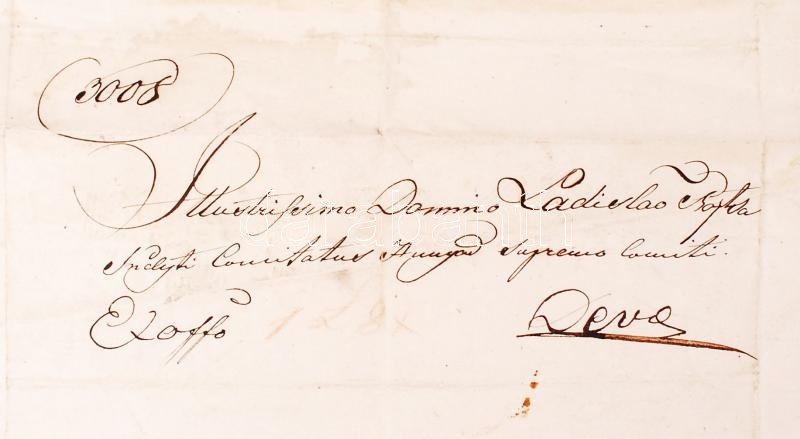 3008
Illustrissimo Domino Ladislao Noptsa
Inclyti Comitatus Hunyad supremo Comiti.
Ex offo
Deva